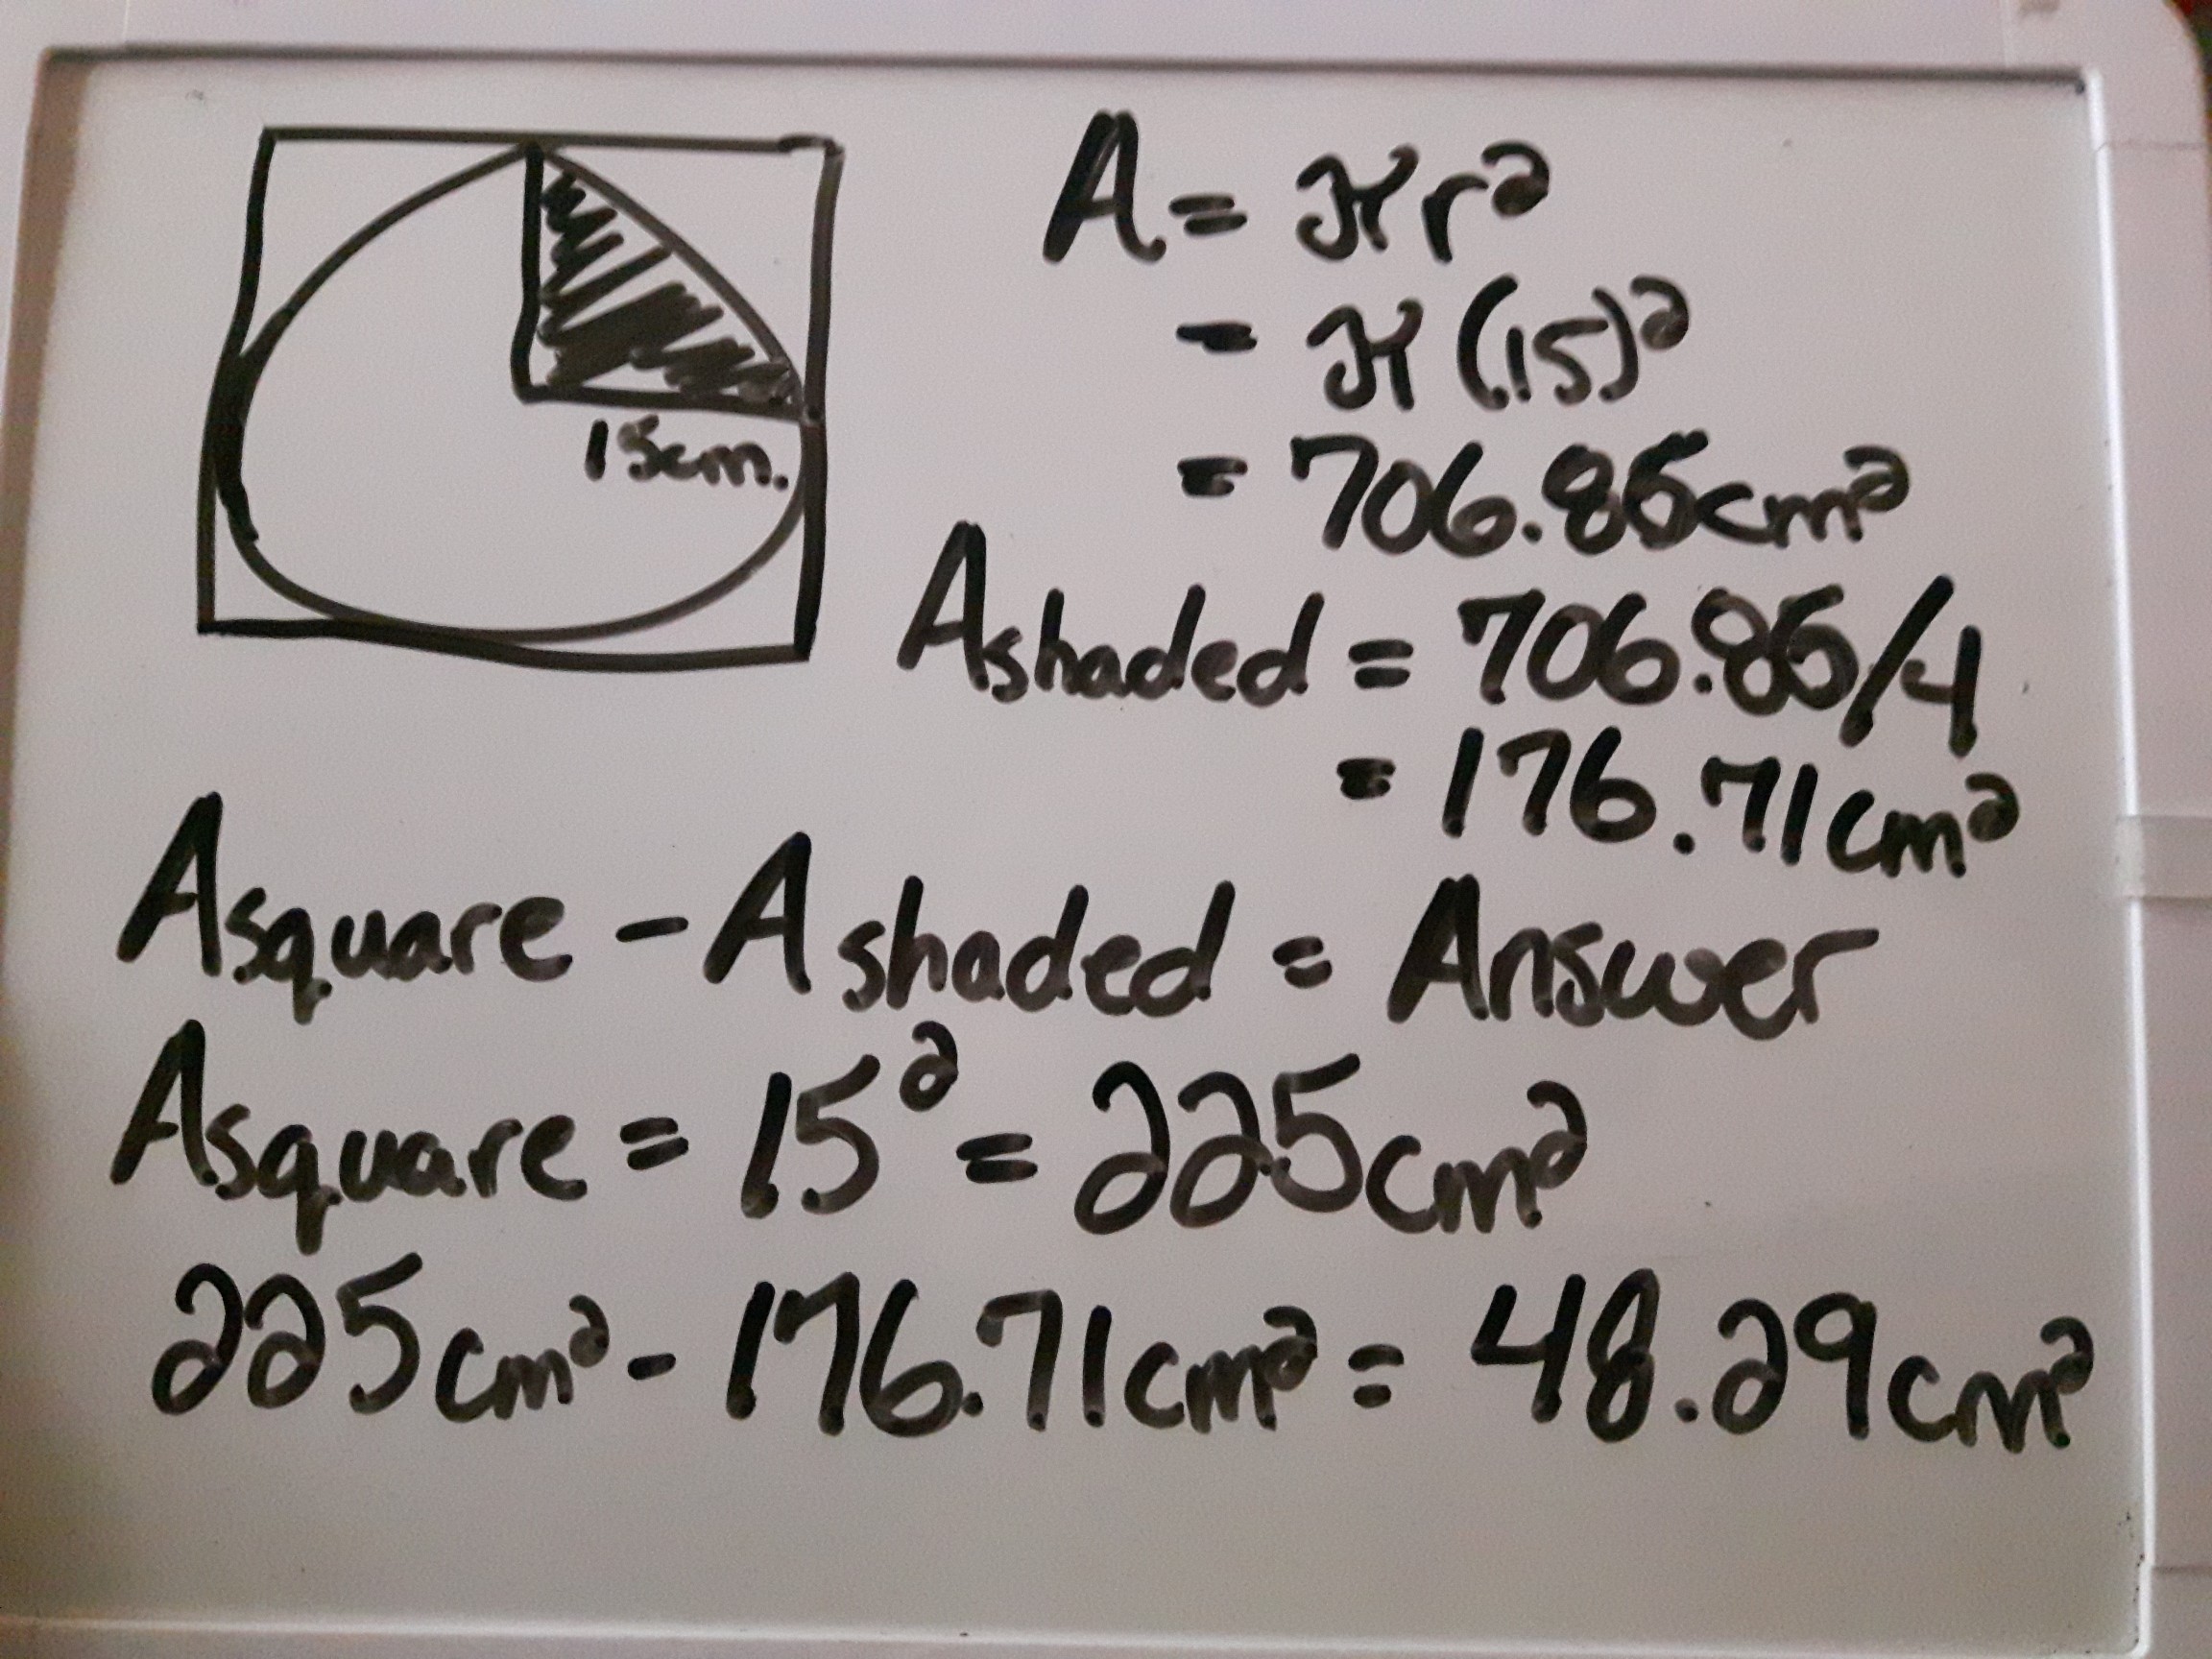 15cm.
A = πr²
= π(15)²
= 706.86cm²
Ashaded = 706.86/4
= 176.71cm²
Asquare - Ashaded = Answer
Asquare = 15² = 225cm²
225cm² - 176.71cm² = 48.29cm²